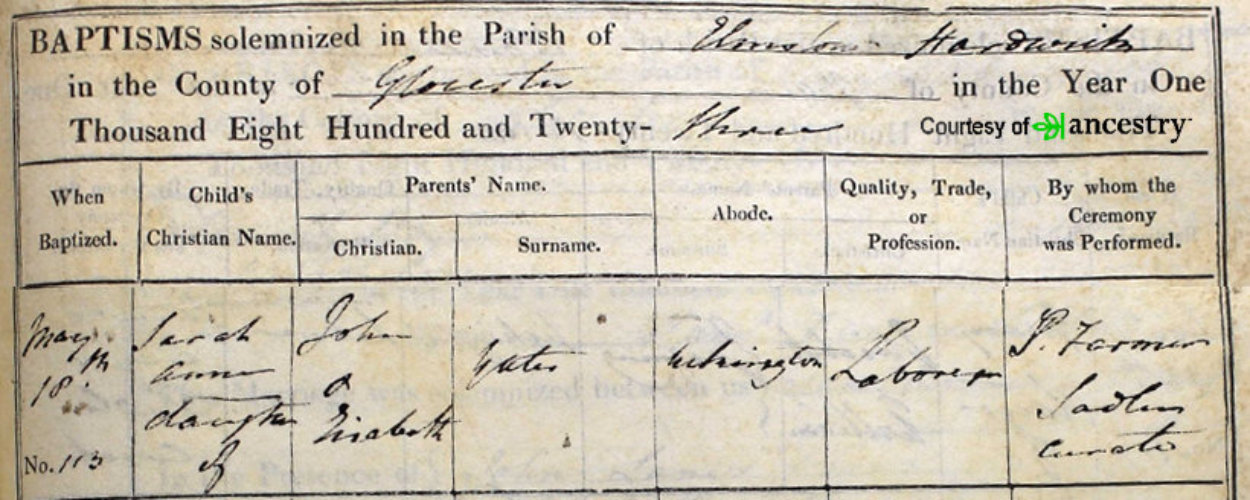 BAPTISMS solemnized in the Parish of Elmstone Hardwick
in the County of Gloucester in the Year One
Thousand Eight Hundred and Twenty- three Courtesy of ancestry
When Baptized. Child's Christian Name. Parents' Name. Abode. Quality, Trade, or Profession. By whom the Ceremony was Performed.
Christian. Surname.
May 18th Sarah John Yates Laborer P. Farmer
anne & Sadler
daughter Elisabeth curate
No. 113 of